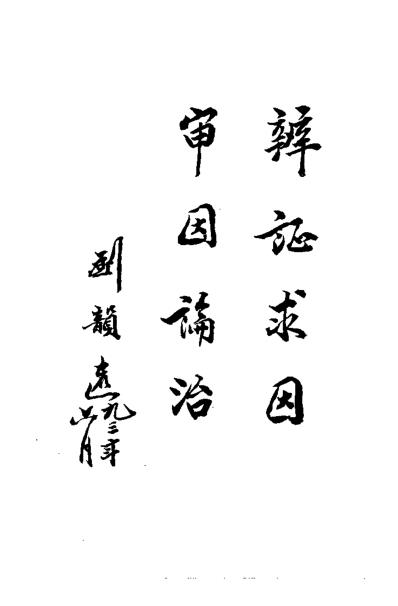 辨証求因
审因論治
劉韻遠
九三年
六月